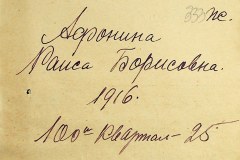 Афонина
Раиса Борисовна.
1916.
100ый квартал - 25